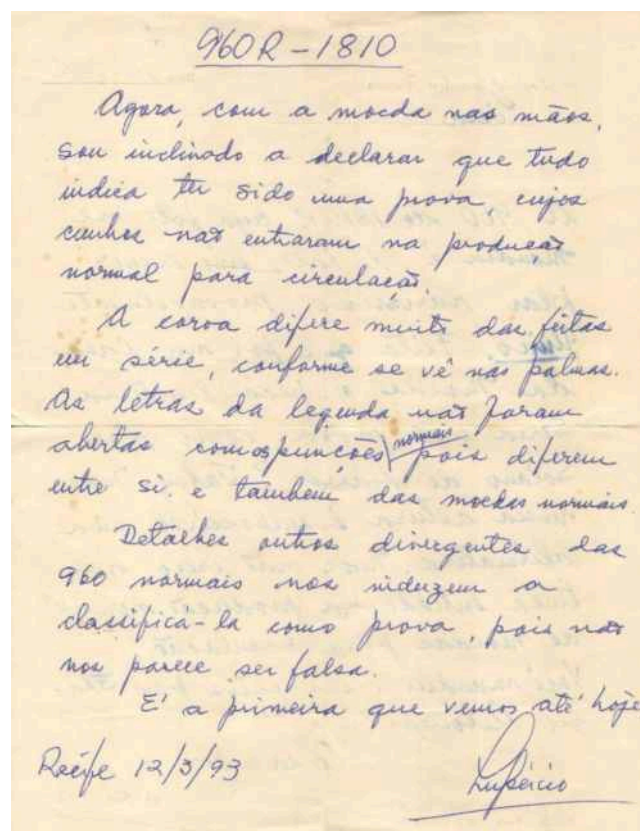 960R - 1810
Agora, com a moeda nas mãos,
sou inclinado a declarar que tudo
indica ter sido uma prova, cujos
cunhos não entraram na produção
normal para circulação.
A coroa difere muito das feitas
em série, conforme se vê nas palmas.
As letras da legenda não foram
abertas com os punções normais pois diferem
entre si. e também das moedas normais.
Detalhes outros divergentes das
960 normais nos induzem a
classificá-la como prova, pois não
nos parece ser falsa.
É a primeira que vemos até hoje
Recife 12/3/93
Lupércio